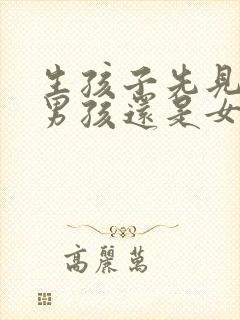 生孩子先見
男孩還是女
高麗萬